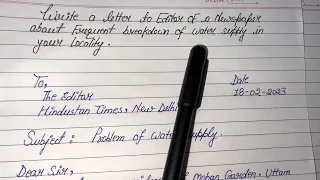 Write a letter to Editor of a Newspaper
about Frequent breakdown of water supply in
your locality.
To,
Date
The Editor
18-02-2023
Hindustan Times, New Delhi
Subject: Problem of Water Supply.
Dear Sir,
Mohan Garden, Uttam